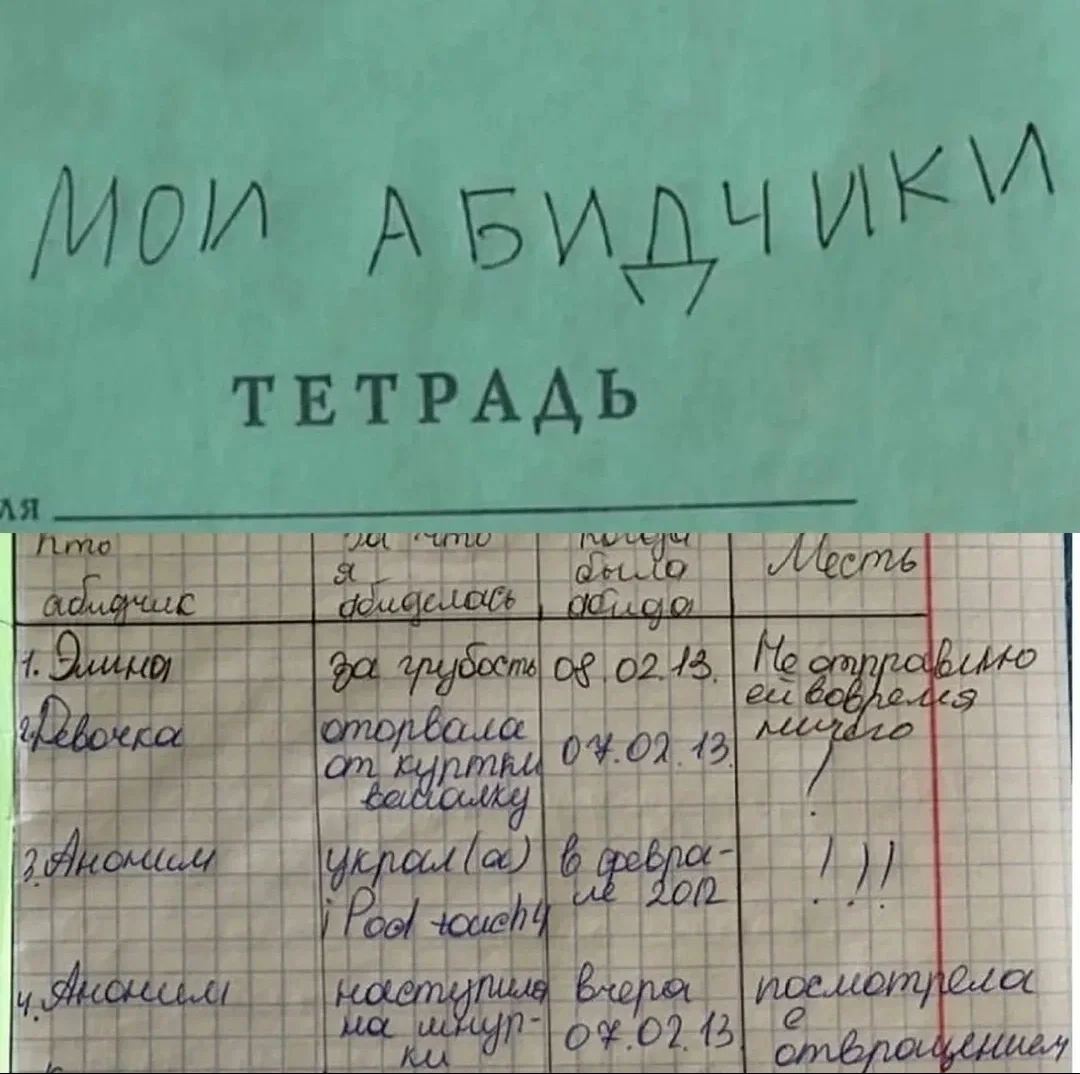 МОИ АБИДЧИКИ
ТЕТРАДЬ
ля
Кто за что когда Месть
я была
абидчик абиделась абида
1. Элина за грубость 08.02.13. Не отправляю
ей вовремя
2. Девочка оторвала 07.02.13. ничего
от куртки !
вешалку
3. Аноним украл(а) в февра- ! ! !
ле 2012
iPod touch 4
4. Аноним наступила вчера посмотрела
на шнур- 07.02.13 с
ки отвращением